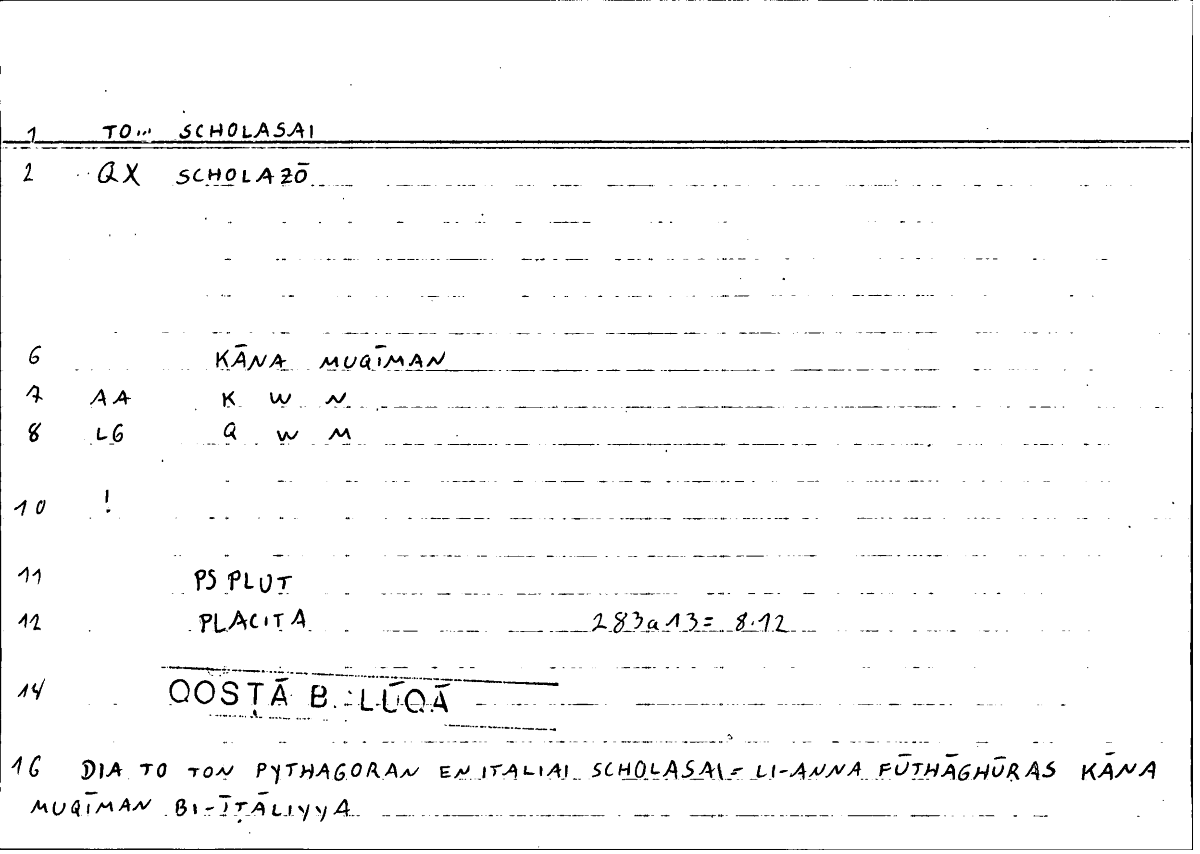 1 TO... SCHOLASAI
2 QX SCHOLAZŌ
6 KĀNA MUQĪMAN
7 AA K W N
8 LG Q W M
10 !
11 PS PLUT
12 PLACITA 283a13= 8.12
14 QOSṬĀ B. LŪQĀ
16 DIA TO TON PYTHAGORAN EN ITALIAI SCHOLASAI= LI-ANNA FŪTHĀGHŪRAS KĀNA
MUQĪMAN BI-ĪṬĀLIYYA